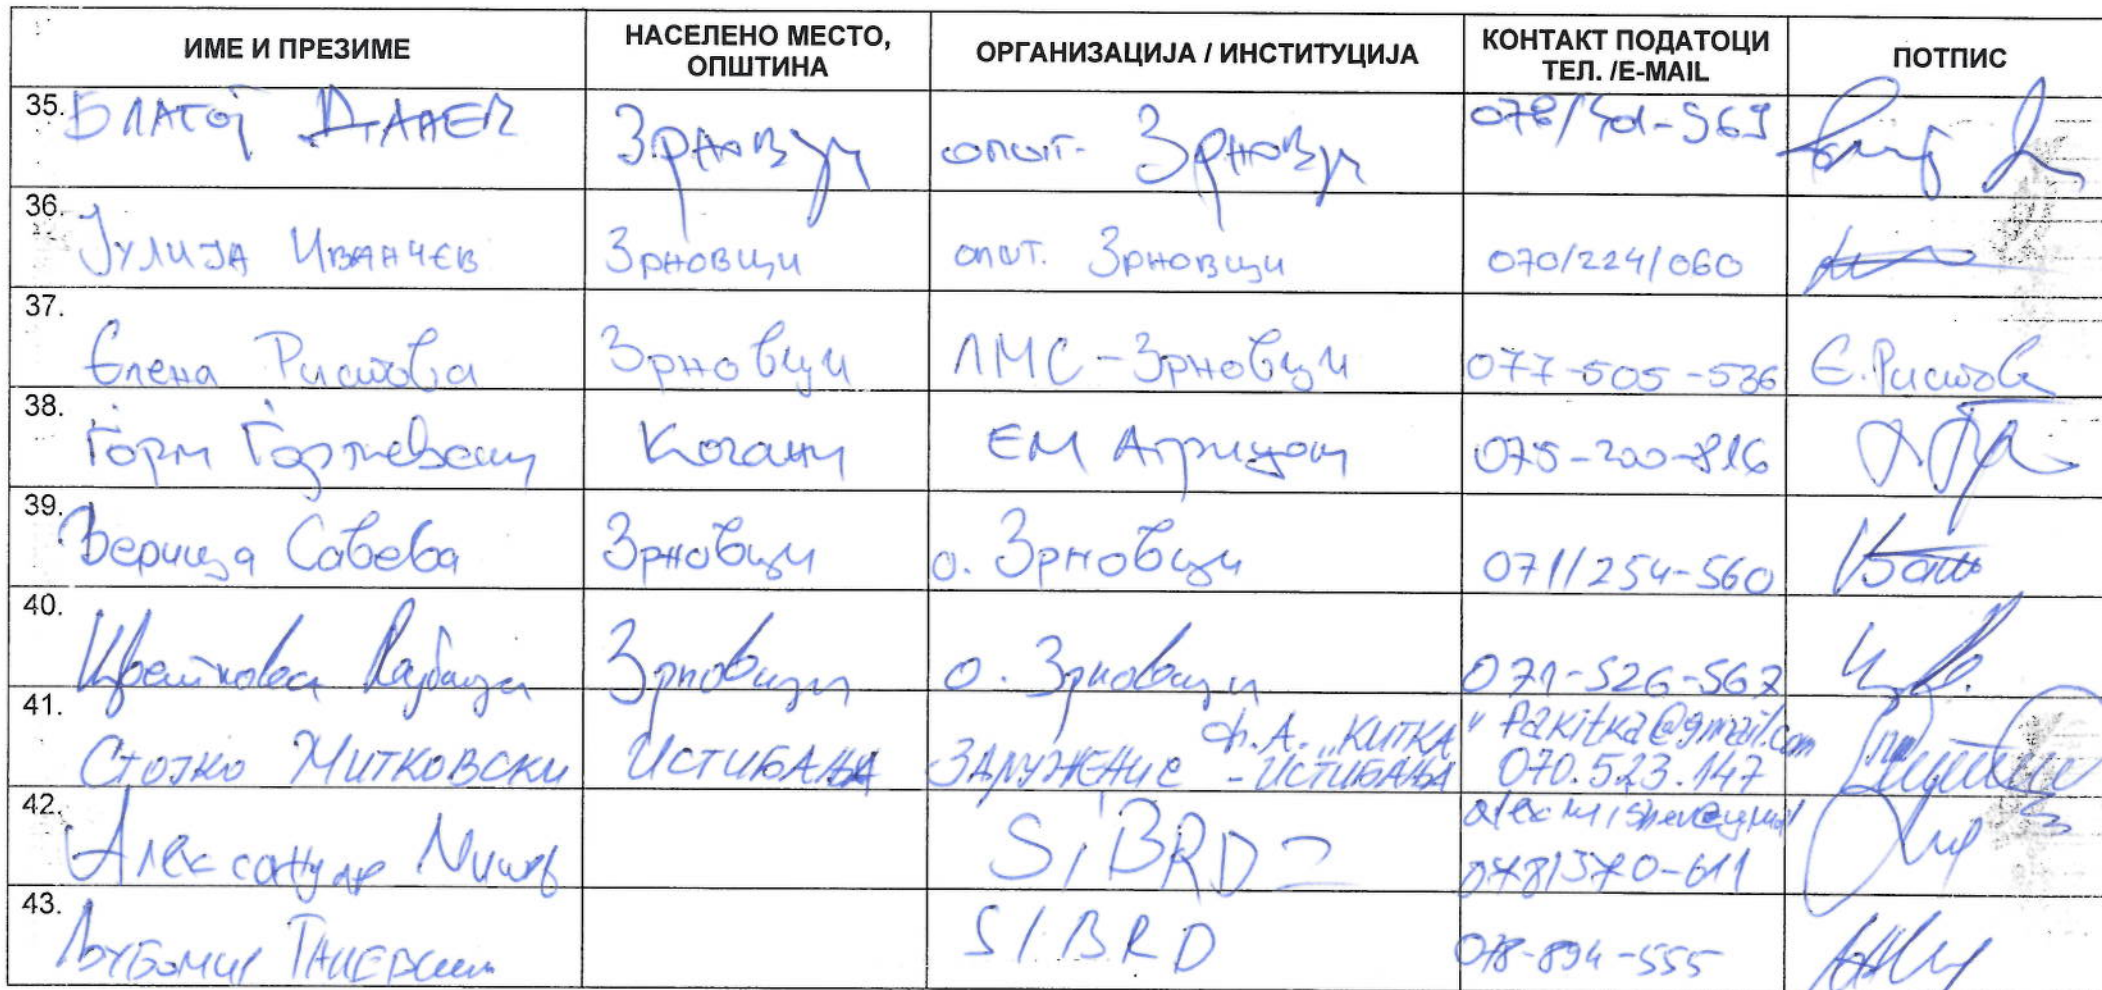 ИМЕ И ПРЕЗИМЕ НАСЕЛЕНО МЕСТО, ОПШТИНА ОРГАНИЗАЦИЈА / ИНСТИТУЦИЈА КОНТАКТ ПОДАТОЦИ ТЕЛ. /E-MAIL ПОТПИС
35. БЛАГОЈ ДАНЕВ Зрновци општ. Зрновци
36. ЈУЛИЈА ИВАНЧЕВ Зрновци општ. Зрновци 070/224/060
37. Елена Ристова Зрновци ЛМС-Зрновци 077-505-536 Е.Ристова
38. Ѓорѓи Кочани ЕМ 075-200-816
39. Верица Савева Зрновци о. Зрновци 071/254-560
40. Цветкова Зрновци о. Зрновци 071-526-567
41. СТОЈКО МИТКОВСКИ ИСТИБАЊА ЗДРУЖЕНИЕ Ф.А. „КИТКА" - ИСТИБАЊА fakitka@gmail.com 070.523.147
42. Александар Мишев SIBRD 078/370-611
43. SIBRD 078-894-555